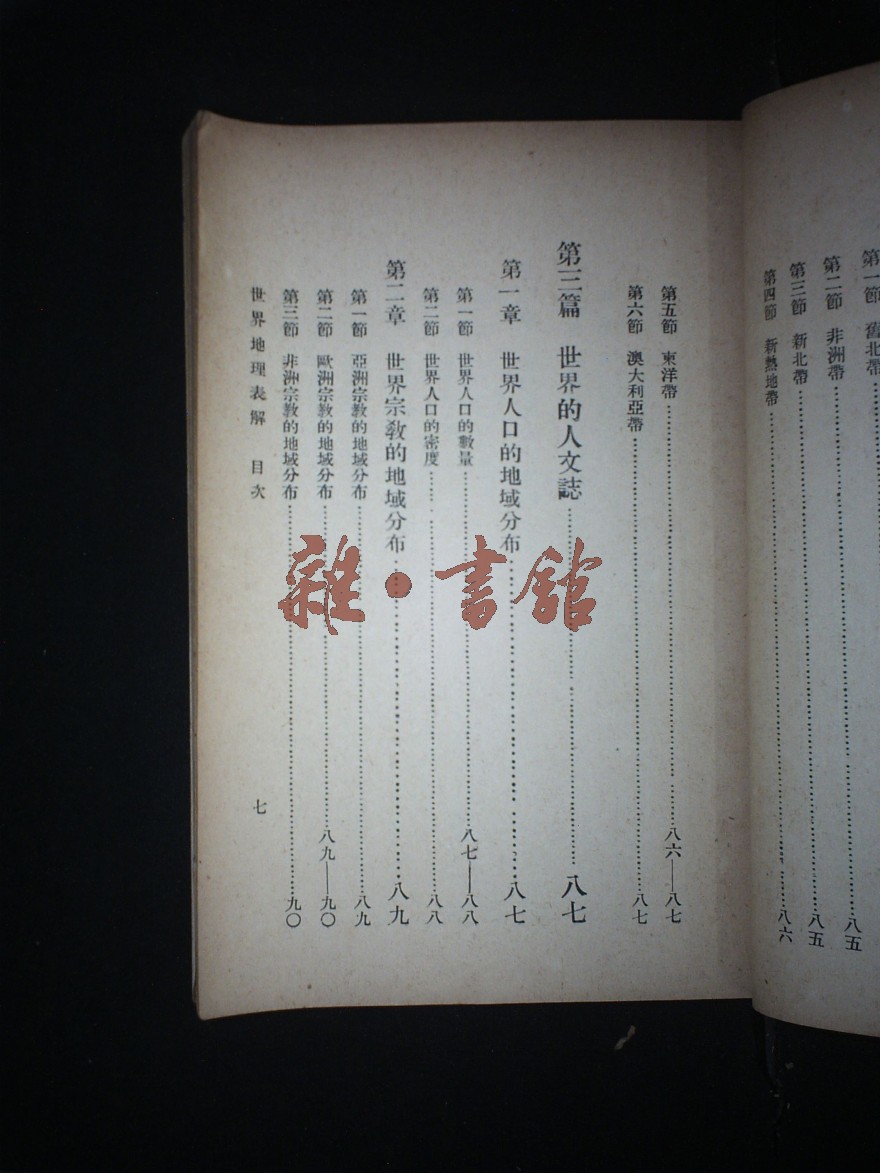 第一節　舊北帶……八五
第二節　非洲帶……八五
第三節　新北帶……八五
第四節　新熱地帶……八六
第五節　東洋帶……八六——八七
第六節　澳大利亞帶……八七
第三篇　世界的人文誌……八七
第一章　世界人口的地域分布……八七
第一節　世界人口的數量……八七——八八
第二節　世界人口的密度……八八
第二章　世界宗教的地域分布……八九
第一節　亞洲宗教的地域分布……八九
第二節　歐洲宗教的地域分布……八九——九〇
第三節　非洲宗教的地域分布……九〇
世界地理表解　目次　七
雜·書館